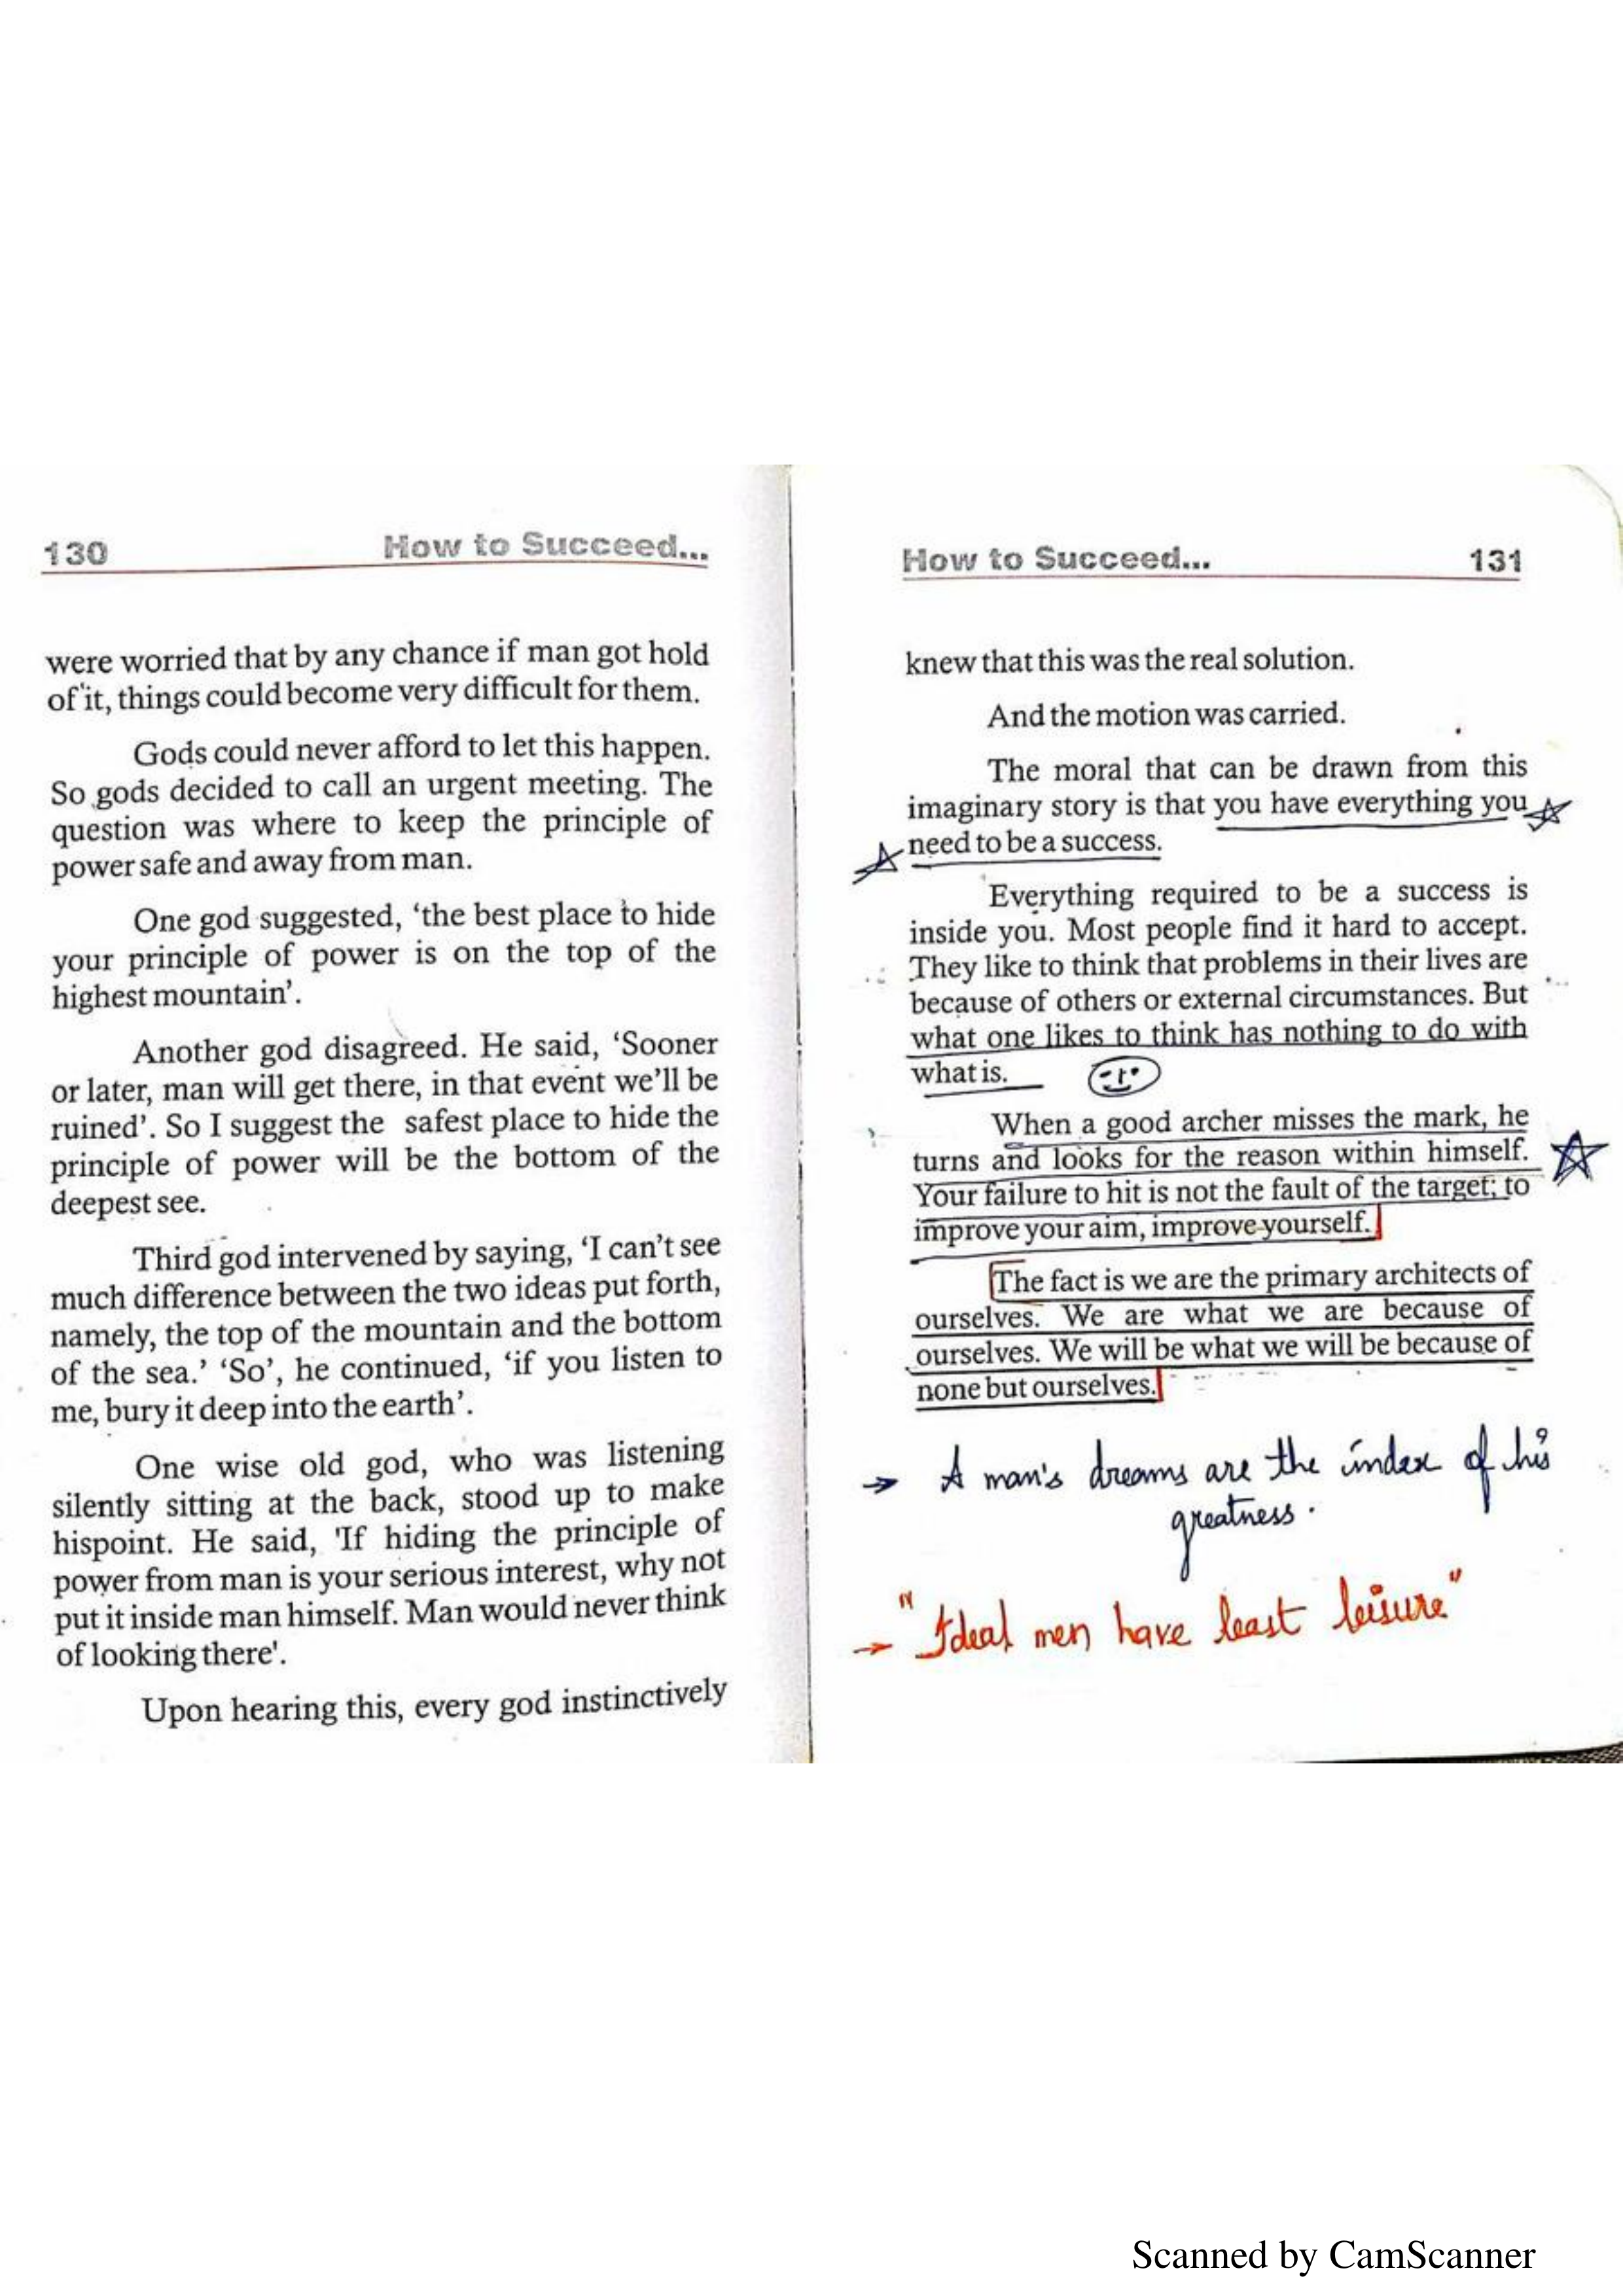 130 How to Succeed...
were worried that by any chance if man got hold
of it, things could become very difficult for them.
Gods could never afford to let this happen.
So gods decided to call an urgent meeting. The
question was where to keep the principle of
power safe and away from man.
One god suggested, ‘the best place to hide
your principle of power is on the top of the
highest mountain’.
Another god disagreed. He said, ‘Sooner
or later, man will get there, in that event we’ll be
ruined’. So I suggest the safest place to hide the
principle of power will be the bottom of the
deepest see.
Third god intervened by saying, ‘I can’t see
much difference between the two ideas put forth,
namely, the top of the mountain and the bottom
of the sea.’ ‘So’, he continued, ‘if you listen to
me, bury it deep into the earth’.
One wise old god, who was listening
silently sitting at the back, stood up to make
hispoint. He said, 'If hiding the principle of
power from man is your serious interest, why not
put it inside man himself. Man would never think
of looking there'.
Upon hearing this, every god instinctively
How to Succeed... 131
knew that this was the real solution.
And the motion was carried.
The moral that can be drawn from this
imaginary story is that you have everything you
need to be a success.
Everything required to be a success is
inside you. Most people find it hard to accept.
They like to think that problems in their lives are
because of others or external circumstances. But
what one likes to think has nothing to do with
what is.
When a good archer misses the mark, he
turns and looks for the reason within himself.
Your failure to hit is not the fault of the target; to
improve your aim, improve yourself.
The fact is we are the primary architects of
ourselves. We are what we are because of
ourselves. We will be what we will be because of
none but ourselves.
→ A man's dreams are the index of his
greatness.
→ "Ideal men have least leisure"
Scanned by CamScanner